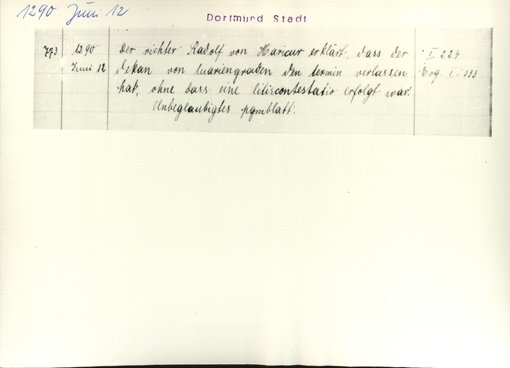 1290 Juni 12
Dortmund Stadt
1290 Der richter Radolf von erklärt, dass der I 224
Juni 12 dekan von mariengraden den termin verlassen Erg. I. 313
hat, ohne dass eine litiscontestatio erfolgt war.
Unbeglaubigtes pgmblatt.